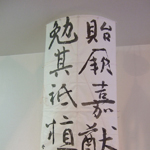 貽厥嘉猷
勉其祗植